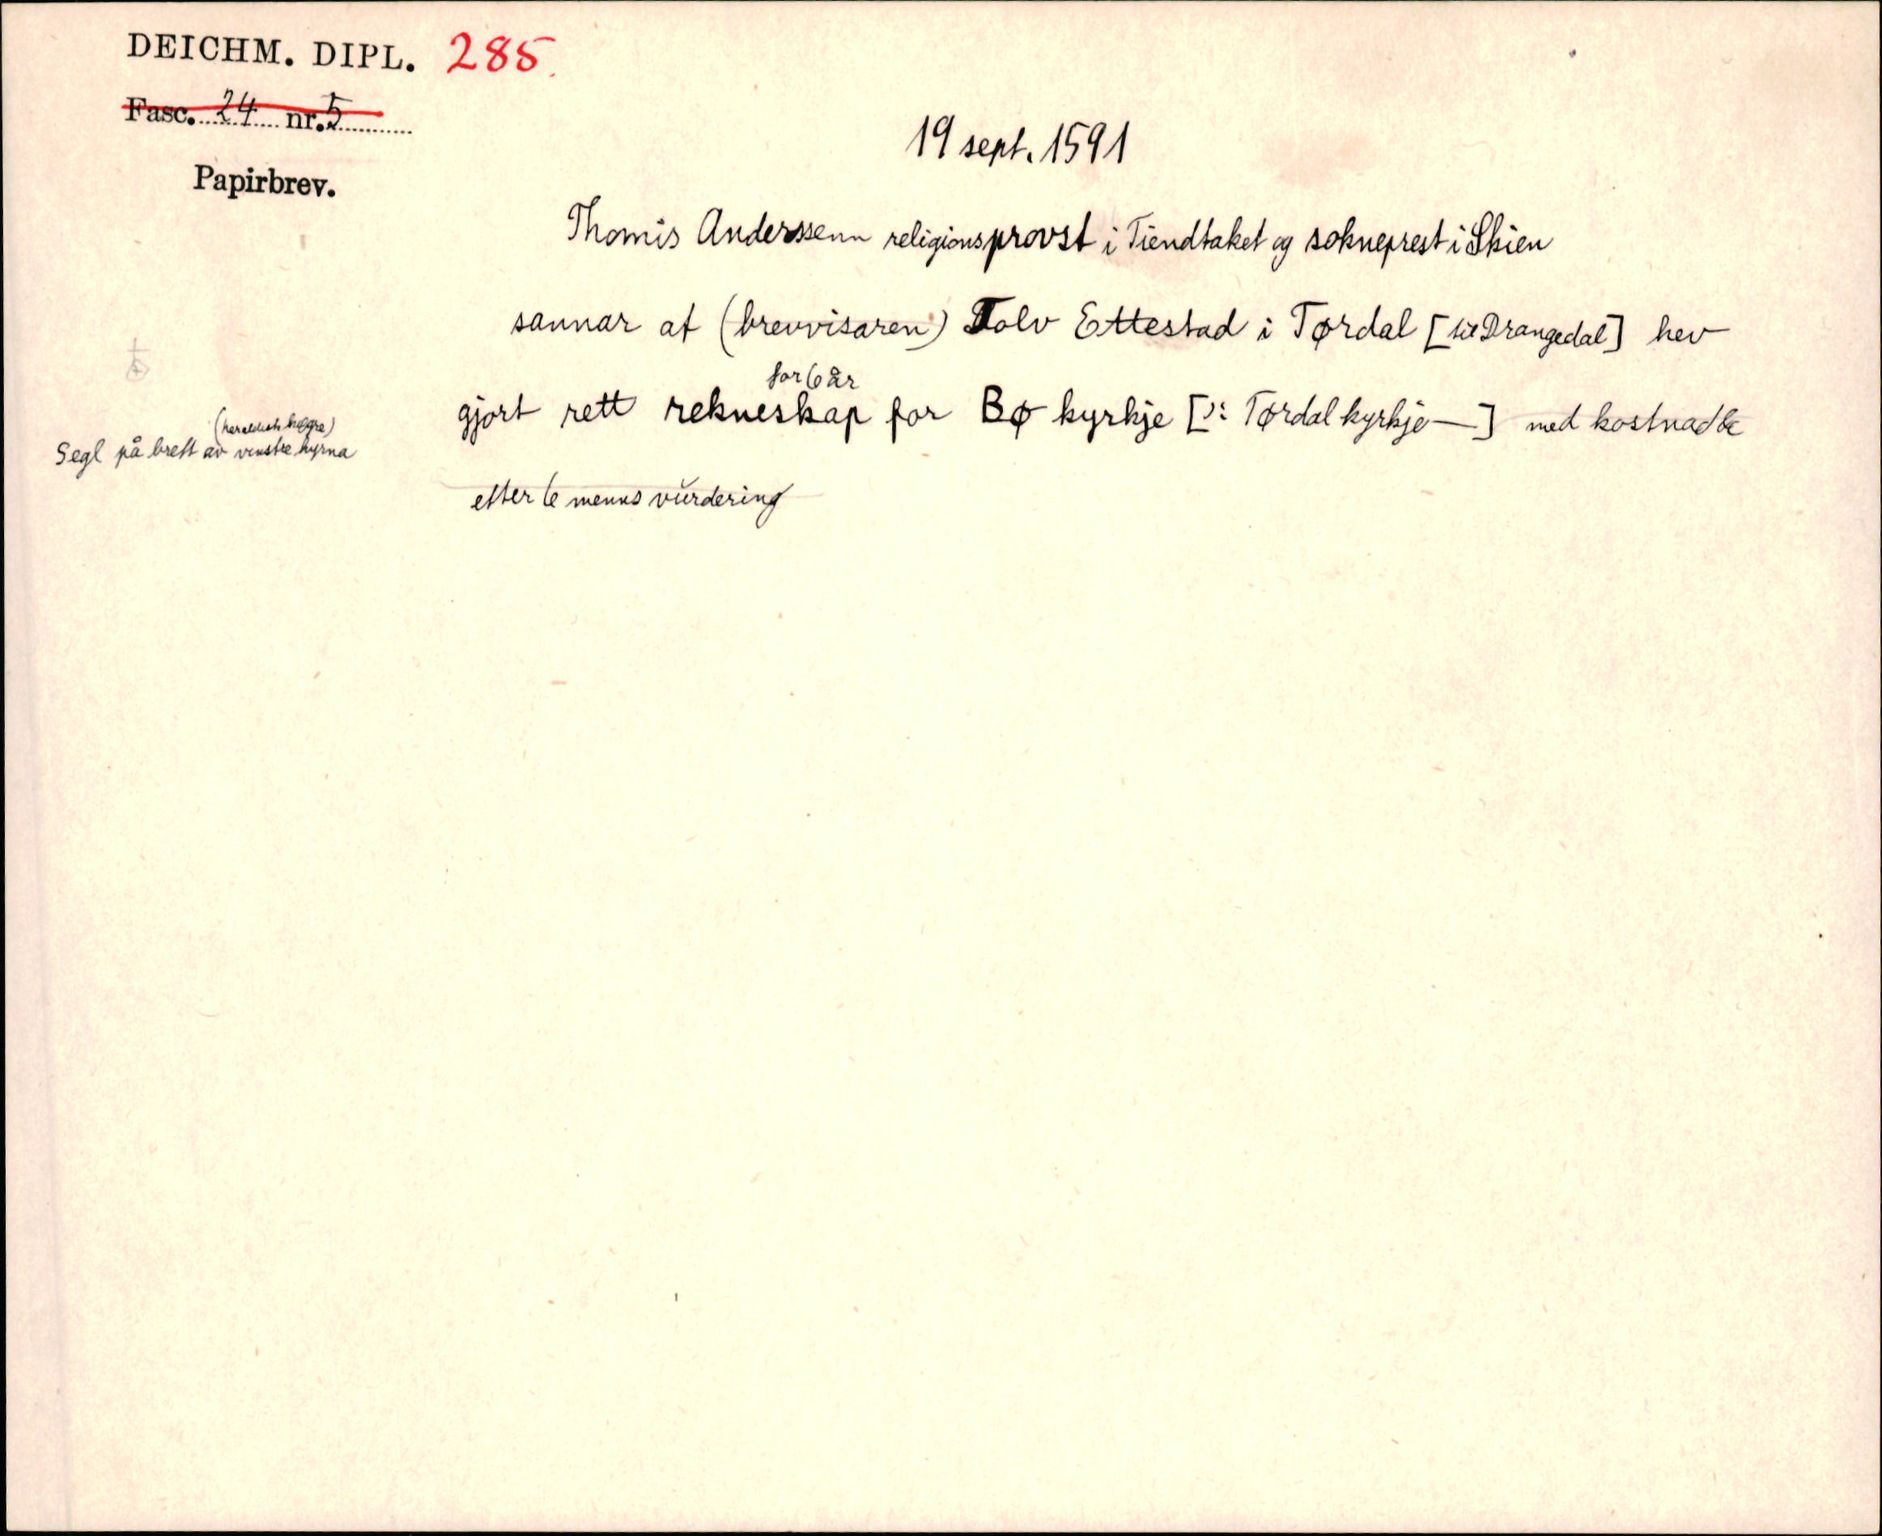 DEICHM. DIPL. 285.
Fasc. 24 nr. 5
Papirbrev.
19 sept. 1591
Thomis Anderssenn religionsprovst i Tiendtaket og sokneprest i Skien
sannar at (brevvisaren) Tolv Ettestad i Tørdal [Drangedal] hev
for 6 år
gjort rett rekneskap for Bø kyrkje [ɔ: Tørdal kyrkje —] med kostnad &c
etter 6 menns vurdering
(heraldisk høgre)
Segl på brett av venstre hyrna